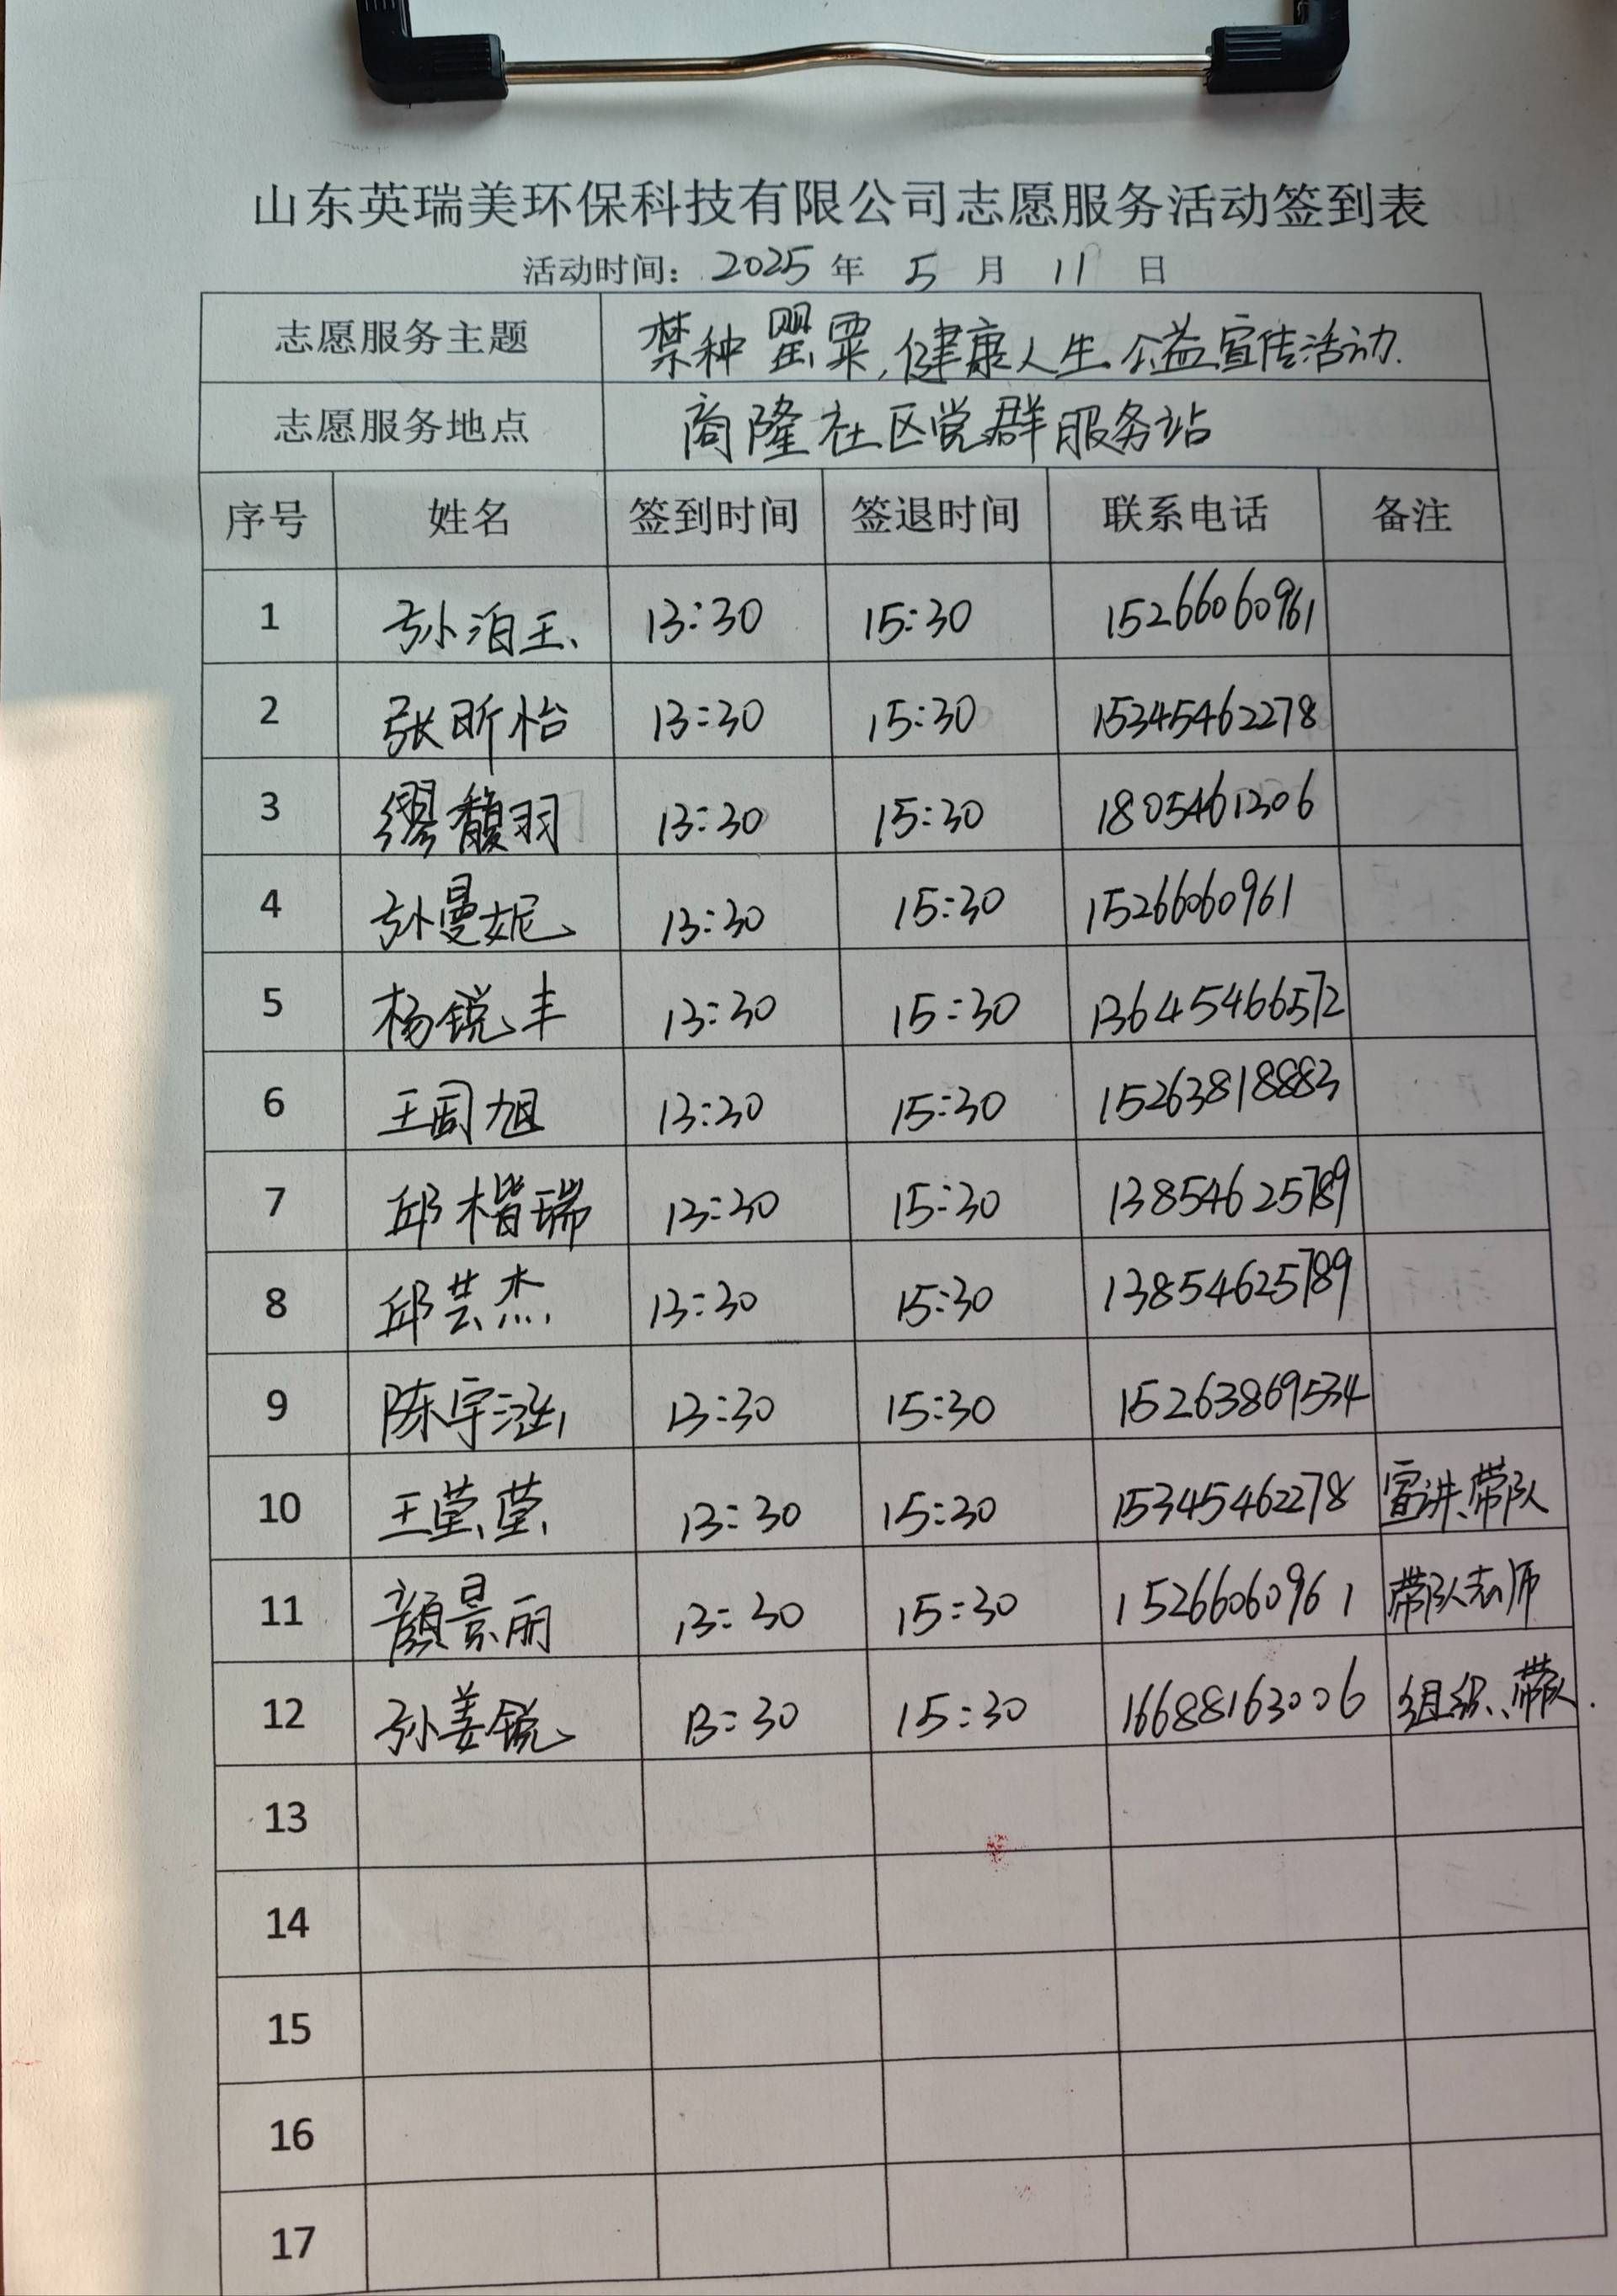 山东英瑞美环保科技有限公司志愿服务活动签到表
活动时间：2025 年 5 月 11 日
志愿服务主题 禁种罂粟，健康人生公益宣传活动.
志愿服务地点 商隆社区党群服务站
序号 姓名 签到时间 签退时间 联系电话 备注
1 孙泊王 13:30 15:30 15266060961
2 张昕怡 13:30 15:30 15345462278
3 缪馥羽 13:30 15:30 1805461306
4 孙曼妮 13:30 15:30 15266060961
5 杨锐丰 13:30 15:30 13645466572
6 王周旭 13:30 15:30 15263818883
7 邱楷瑞 13:30 15:30 13854625789
8 邱芸杰 13:30 15:30 13854625789
9 陈宇涵 13:30 15:30 15263869534
10 王莹莹 13:30 15:30 15345462278 宣讲、带队
11 颜景丽 13:30 15:30 15266060961 带队老师
12 孙姜锐 13:30 15:30 16688163006 组织、带队.
13
14
15
16
17